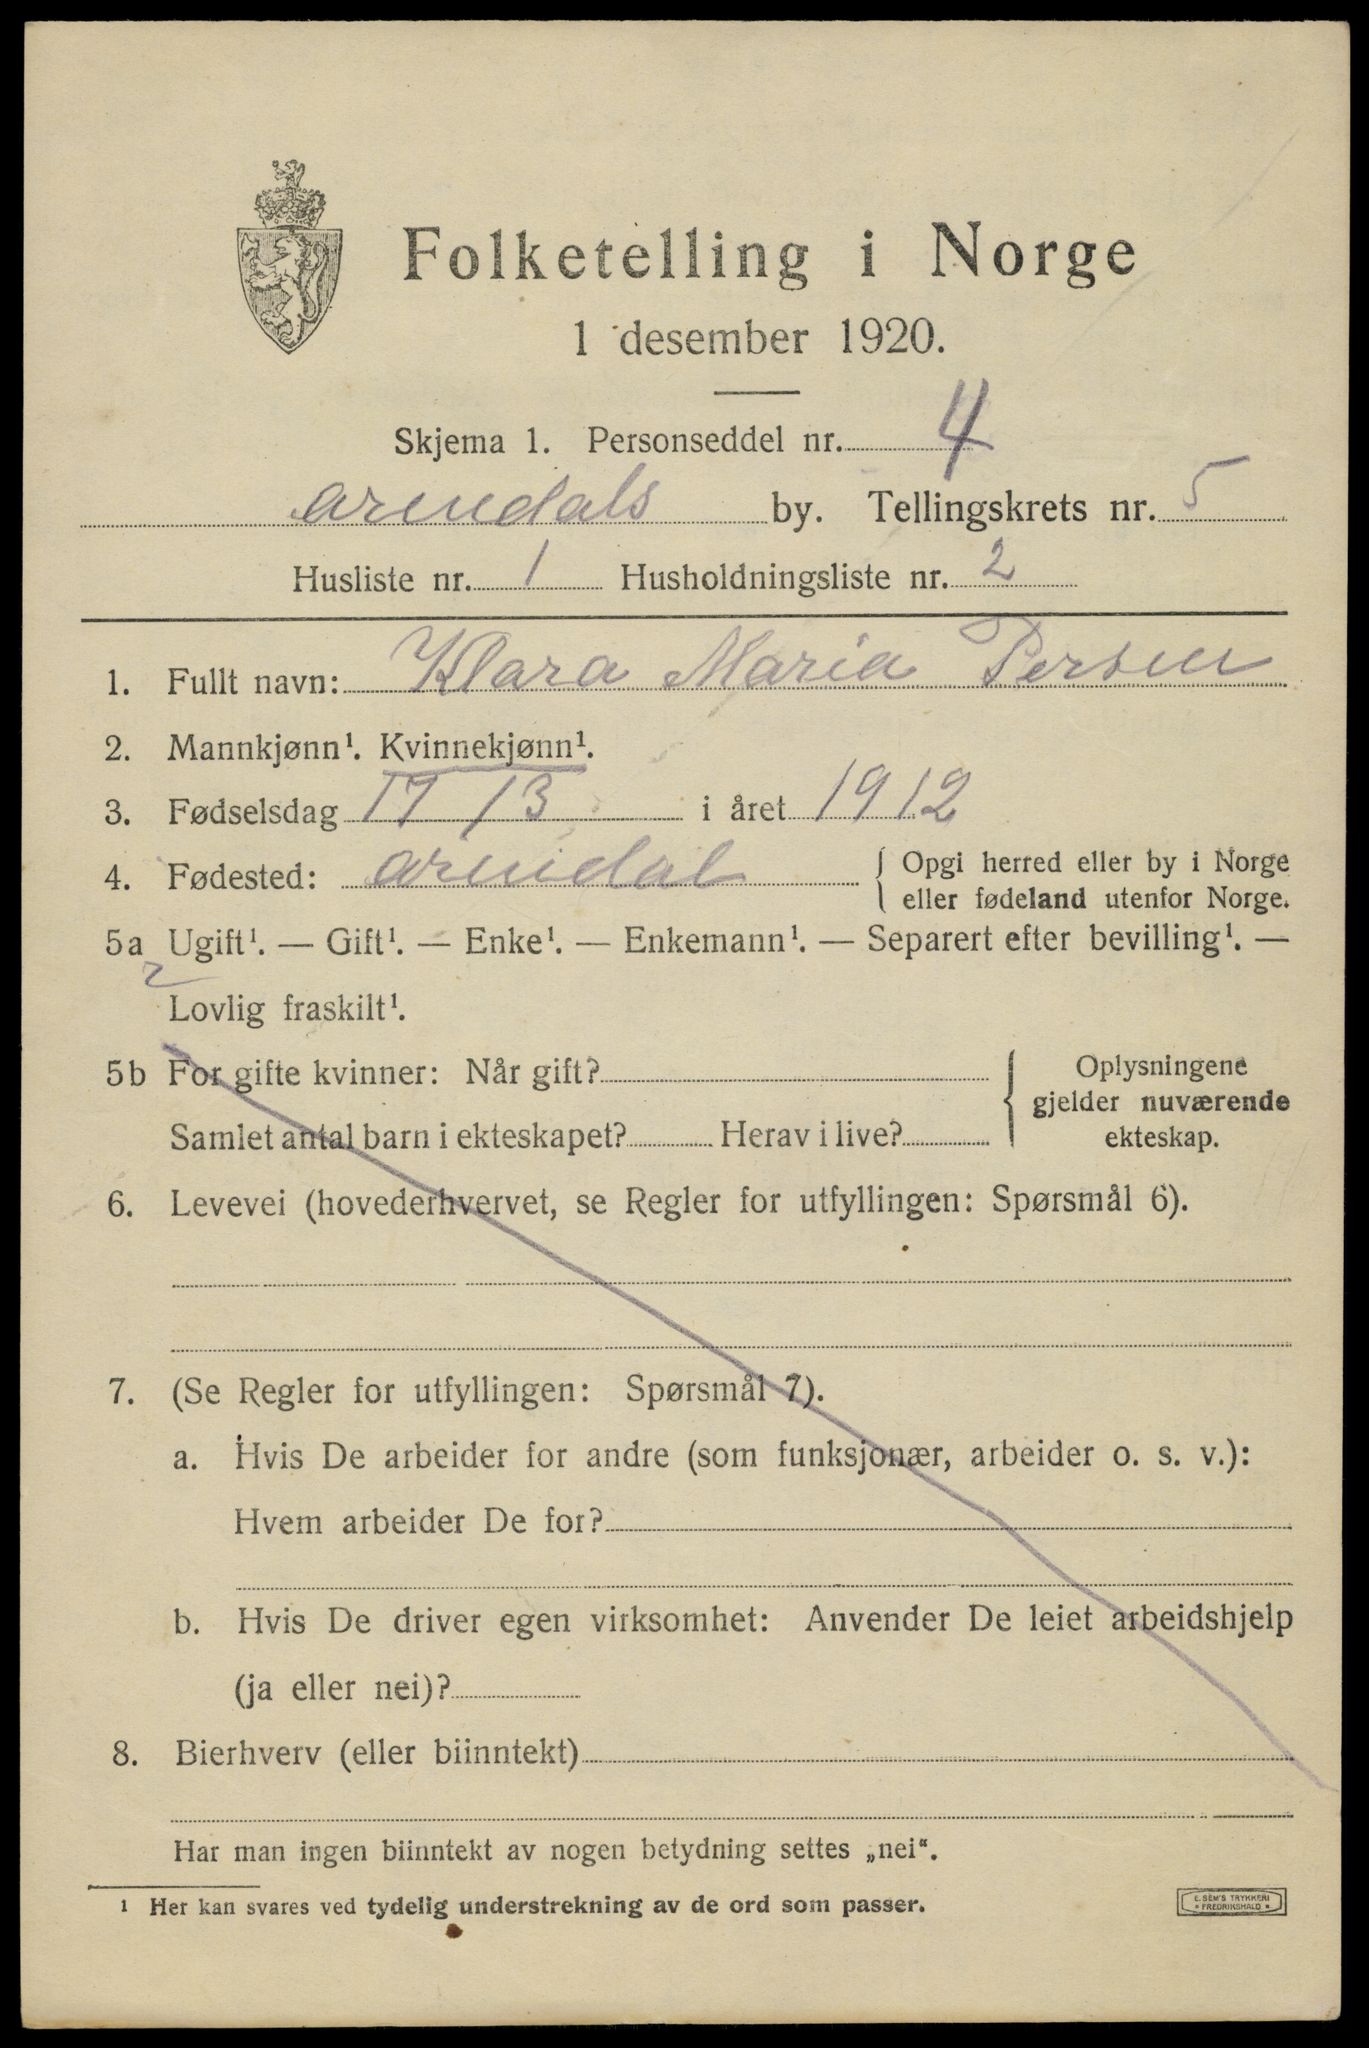 Folketelling i Norge
1 desember 1920.
Skjema 1. Personseddel nr. 4
Arendals by. Tellingskrets nr. 5
Husliste nr. 1 Husholdningsliste nr. 2
1. Fullt navn: Klara Maria Persen
2. Mannkjønn¹. Kvinnekjønn¹.
3. Fødselsdag 17/3 i året 1912
4. Fødested: Arendal { Opgi herred eller by i Norge
eller fødeland utenfor Norge.
5a Ugift¹. — Gift¹. — Enke¹. — Enkemann¹. — Separert efter bevilling¹. —
Lovlig fraskilt¹.
5b For gifte kvinner: Når gift?
Samlet antal barn i ekteskapet? Herav i live?
Oplysningene
gjelder nuværende
ekteskap.
6. Levevei (hovederhvervet, se Regler for utfyllingen: Spørsmål 6).
7. (Se Regler for utfyllingen: Spørsmål 7).
a. Hvis De arbeider for andre (som funksjonær, arbeider o. s. v.):
Hvem arbeider De for?
b. Hvis De driver egen virksomhet: Anvender De leiet arbeidshjelp
(ja eller nei)?
8. Bierhverv (eller biinntekt)
Har man ingen biinntekt av nogen betydning settes „nei“.
¹ Her kan svares ved tydelig understrekning av de ord som passer.
E. SEM'S TRYKKERI
* FREDRIKSHALD *